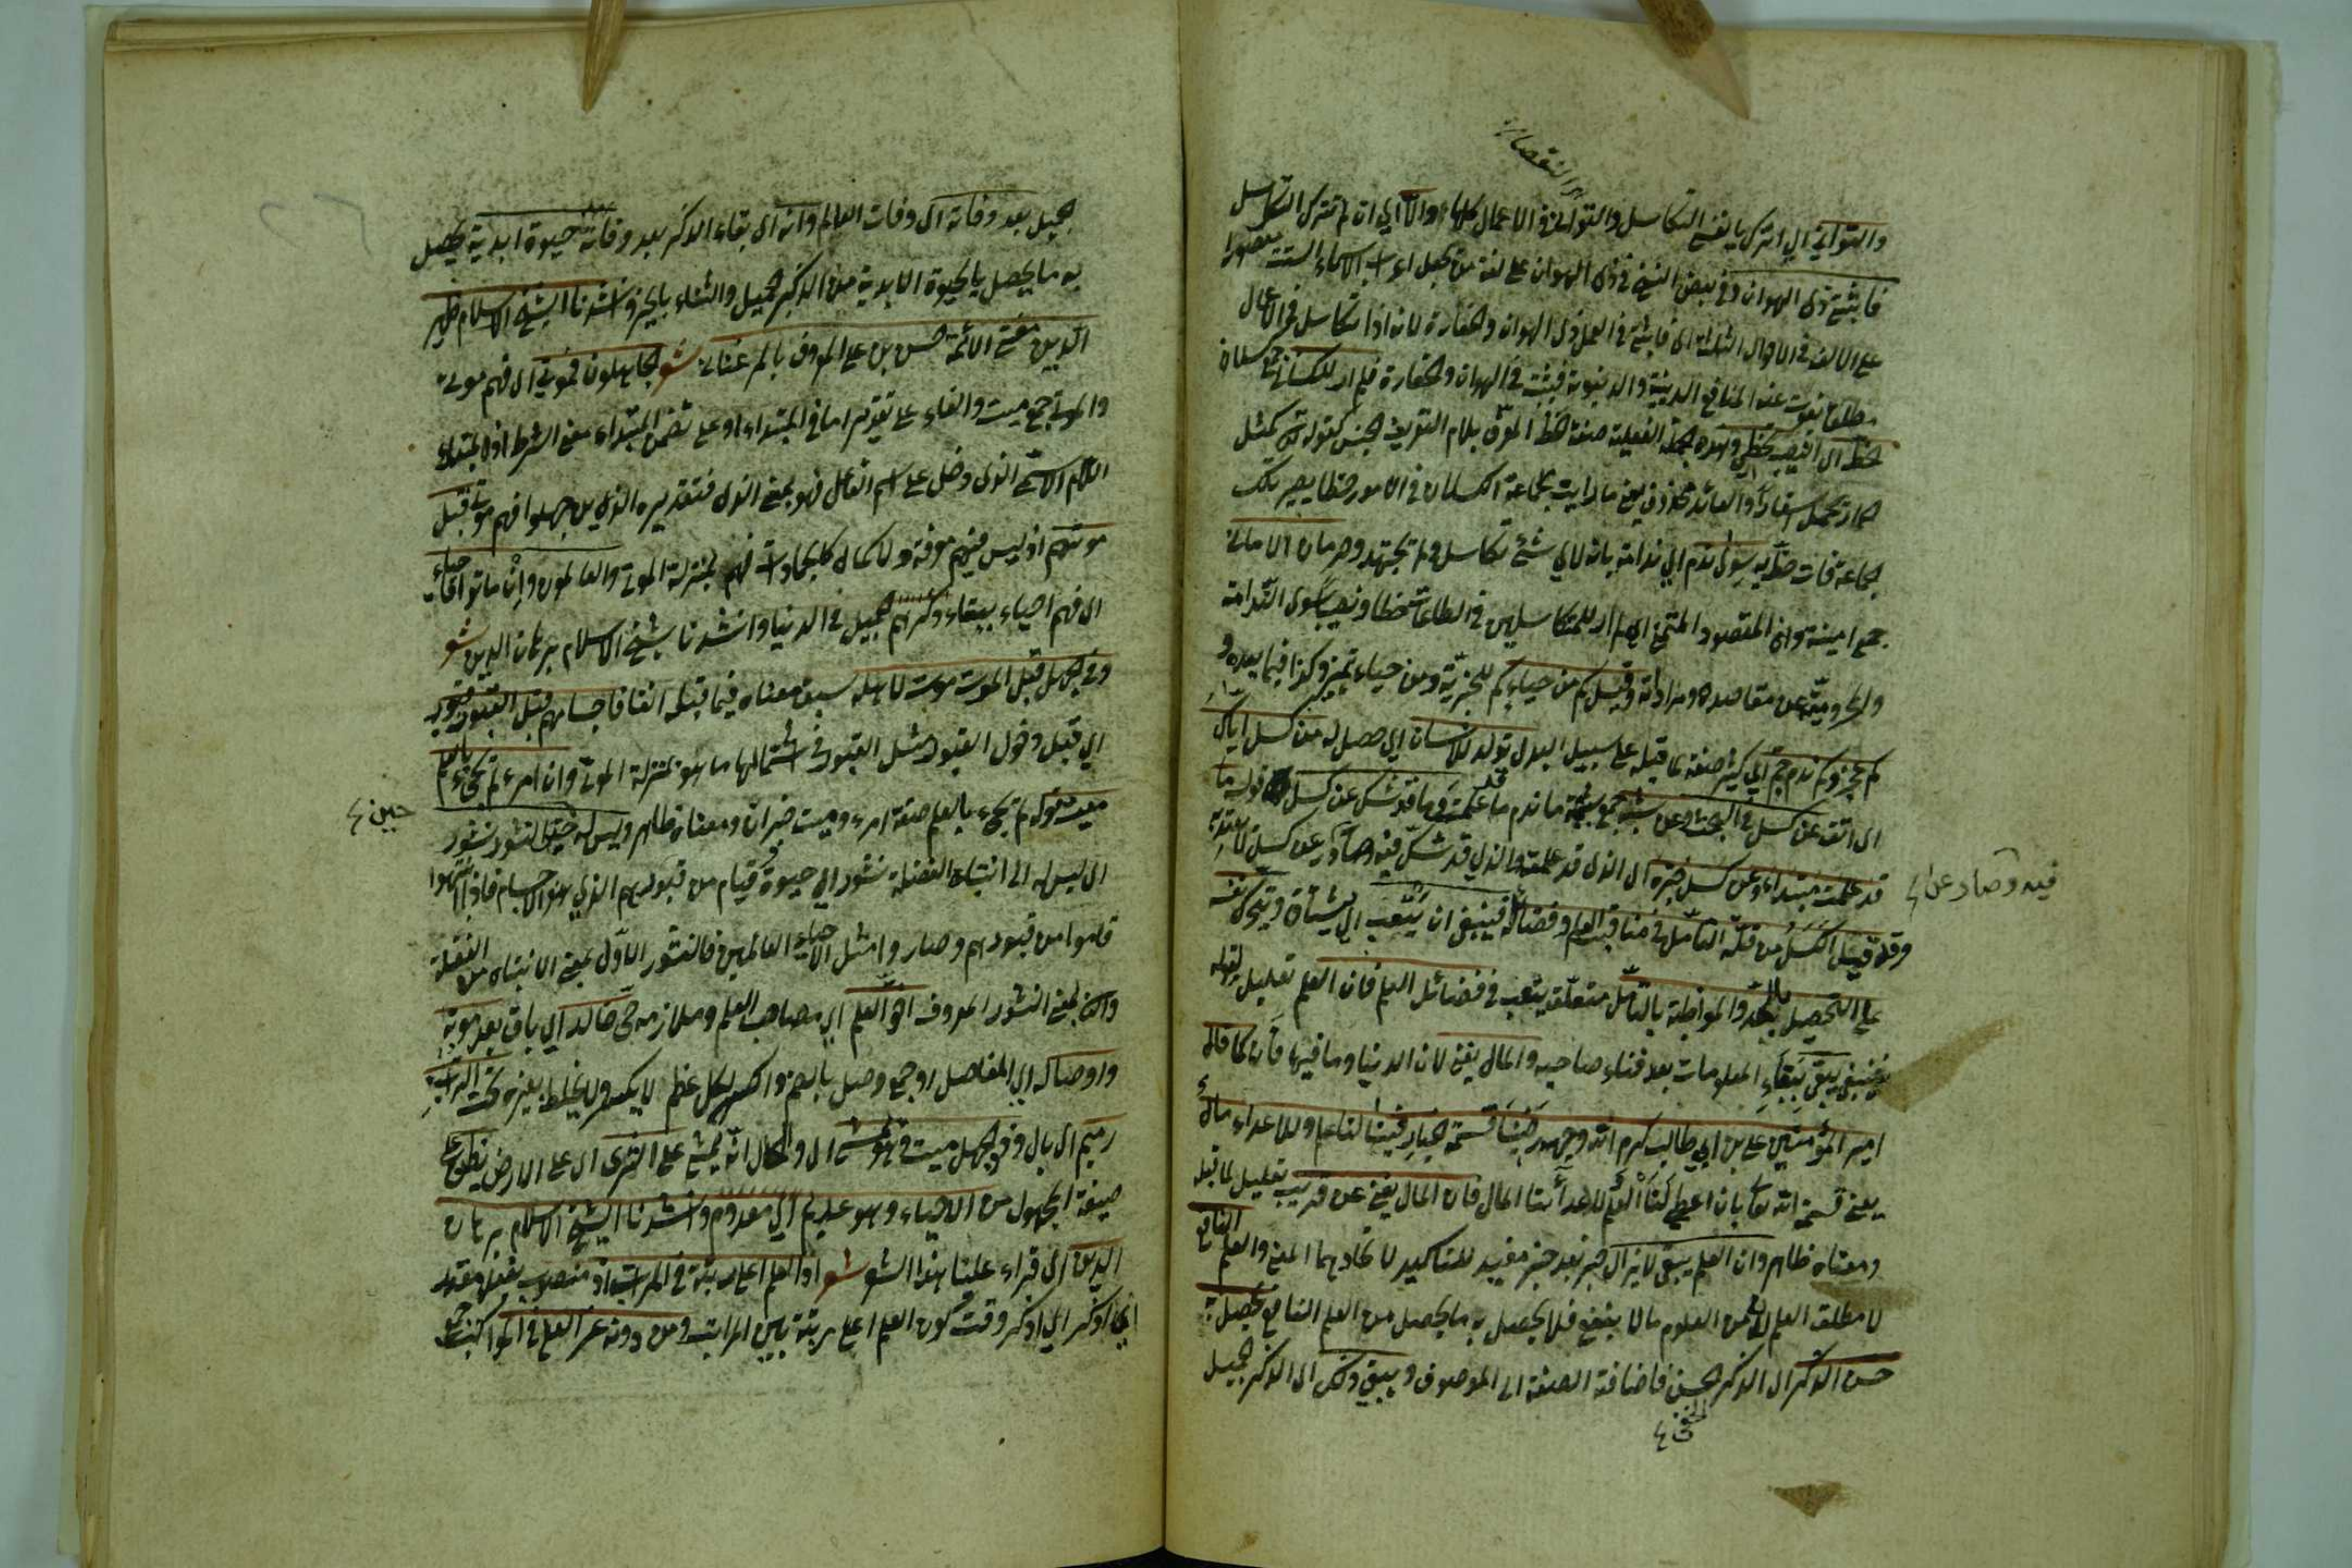 والتواني اي اترك يا نفسي التكاسل والتواني في الاعمال كلها والا اي ان لم تترك التكاسل
فاثبتي في ذي الهوان وفي بعض النسخ في ذي الهوان على لغة من يجعل اعراب الاسماء الستة مقصورا
على الالف في الاحوال الثلاثة اي فاثبتي في العمل ذي الهوان والحقارة لانه اذا تكاسل في الاعمال
مطلقا يفوت عنه المنافع الدينية والدنيوية فيثبت في الهوان والحقارة فلم ار للكسالى
حظا اي نصيب يحظى وهذه الجملة الفعلية صفة الحظ المعرف بلام التعريف الجنس كقوله تعالى كمثل
الحمار يحمل اسفارا والعائد محذوف يعني ما رايت لجماعة الكسلان في الامور حظا يصير تلك
الجماعة ذات حظ به سوى ندم اي ندامة بانه لاي شئ تكاسل ولم يجتهد وحرمان الاماني
جمع امنية وان المقصود المتمنى اي لم ار للمتكاسلين في الطاعات حظا ونصيبا سوى الندامة
والمحرومية عن مقاصده ومراداته وقيل كم من حياء كم للخبرية ومن حياء تمييز وكذا فيما بعده و
كم عجز وكم ندم جم اي كثير صفة لما قبله على سبيل البدل تولد للانسان اي حصل له من كسل اياك
اي اتق عن كسل في البحث وعن شبه جمع شبهة ما ندم ما علمت وما قد شك عن كسل قوله ما
قد علمت مبتداء وعن كسل خبره اي الذي قد علمته والذي قد شك فيه وصادر عن كسل
فيه وصادر عن
وقد قيل الكسل من قلة التأمل في مناقب العلم وفضائله فينبغي ان يتعب اي نفسه
على التحصيل بالجد والمواظبة بالتأمل متعلق يتعب في فضائل العلم فان العلم تعليل لقوله
فينبغي يبقى ببقاء المعلومات بعد فناء صاحبه والمال يفنى لان الدنيا وما فيها فان كما قال
امير المؤمنين علي بن ابي طالب كرم الله وجهه رضينا قسمة الجبار فينا لنا علم وللاعداء مال
يعني قسمة الله تعالى بان اعطى لنا العلم لاعدائنا المال فان المال يفنى عن قريب تعليل لما قبله
ومعناه ظاهر وان العلم يبقى لا يزال خبر بعد خبر مفيد للتاكيد لاتحادهما المعنى والعلم النافع
لا مطلق العلم لان من العلوم ما لا ينفع فلا يحصل به ما يحصل من العلم النافع يحصل به
حسن الذكر اي الذكر الحسن فاضافة الصفة الى الموصوف ويبقى ذلك اي الذكر الجميل
الجميل بعد وفاته اي وفات العالم وانه اي بقاء الذكر بعد وفاته حيوة ابدية يحصل
به ما يحصل بالحيوة الابدية من الذكر الجميل والثناء بالخير وانشدنا الشيخ الاسلام ظهير
الدين مفتي الائمة حسن بن علي المعروف بالمرغناني شعر الجاهلون فموتى اي فهم موتى
والموتى جمع ميت والفاء على تقدير اما في المبتداء او على تضمن المبتداء معنى الشرط اذ المبتداء
اللام الاسمي الذي دخل على اسم الفاعل فهو بمعنى الذي فتقديره الذين جهلوا فهم موتى قبل
موتهم اذ ليس فيهم معرفة ولا كمال كالجمادات فهم بمنزلة الموتى والعالمون وان ماتوا احياء
اي فهم احياء ببقاء ذكرهم الجميل في الدنيا وانشدنا شيخ الاسلام برهان الدين شعر
وفي الجهل قبل الموت موت لاهله سبق معناه فيما قبله انفا فاجسامهم قبل القبور قبور
اي قبل دخول القبور مثل القبور في اشتمالها ما هو بمنزلة الموتى وان امرء لم يحيى بالعلم
ميت قوله لم يحيى بالعلم صفة امرء وميت خبر ان ومعناه ظاهر وليس له حتى النشور نشور
حين
اي ليس له الى انتباه الغفلة نشور اي حيوة وقيام من قبورهم الذي هو الاجسام فاذا انتبهوا
قاموا من قبورهم وصاروا مثل الاحياء العالمين فالنشور الاول بمعنى الانتباه من الغفلة
والثاني بمعنى النشور المعروف اخو العلم اي مصاحب العلم وملازمه حي خالد اي باق بعد موته
واوصاله اي المفاصل او جمع وصل بالضم والكسر لكل عظم لا يكسر ولا يخلط بغيره تحت التراب
رميم اي بال وذو الجهل ميت وهو يمشي اي والحال انه يمشي على الثرى اي على الارض يظن على
صيغة المجهول من الاحياء وهو عديم اي معدوم وانشدنا الشيخ الاسلام برهان
الدين اي قراء علينا هذا الشعر شعر اذ العلم اعلى رتبة في المراتب اذ منصوب بفعل مقدر
اي اذكر اي اذكر وقت كون العلم اعلى رتبة بين المراتب ومن دونه عز العلى في المواكب جمع